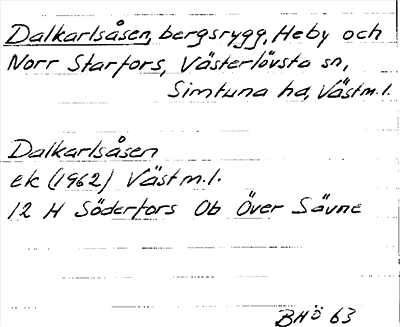 Dalkarlsåsen, bergsrygg, Heby och
Norr Starfors, Västerlövsta sn,
Simtuna hd, Västm.l.
Dalkarlsåsen
ek (1962) Västm.l.
12 H Söderfors Ob Över Sävne
BHÖ 63